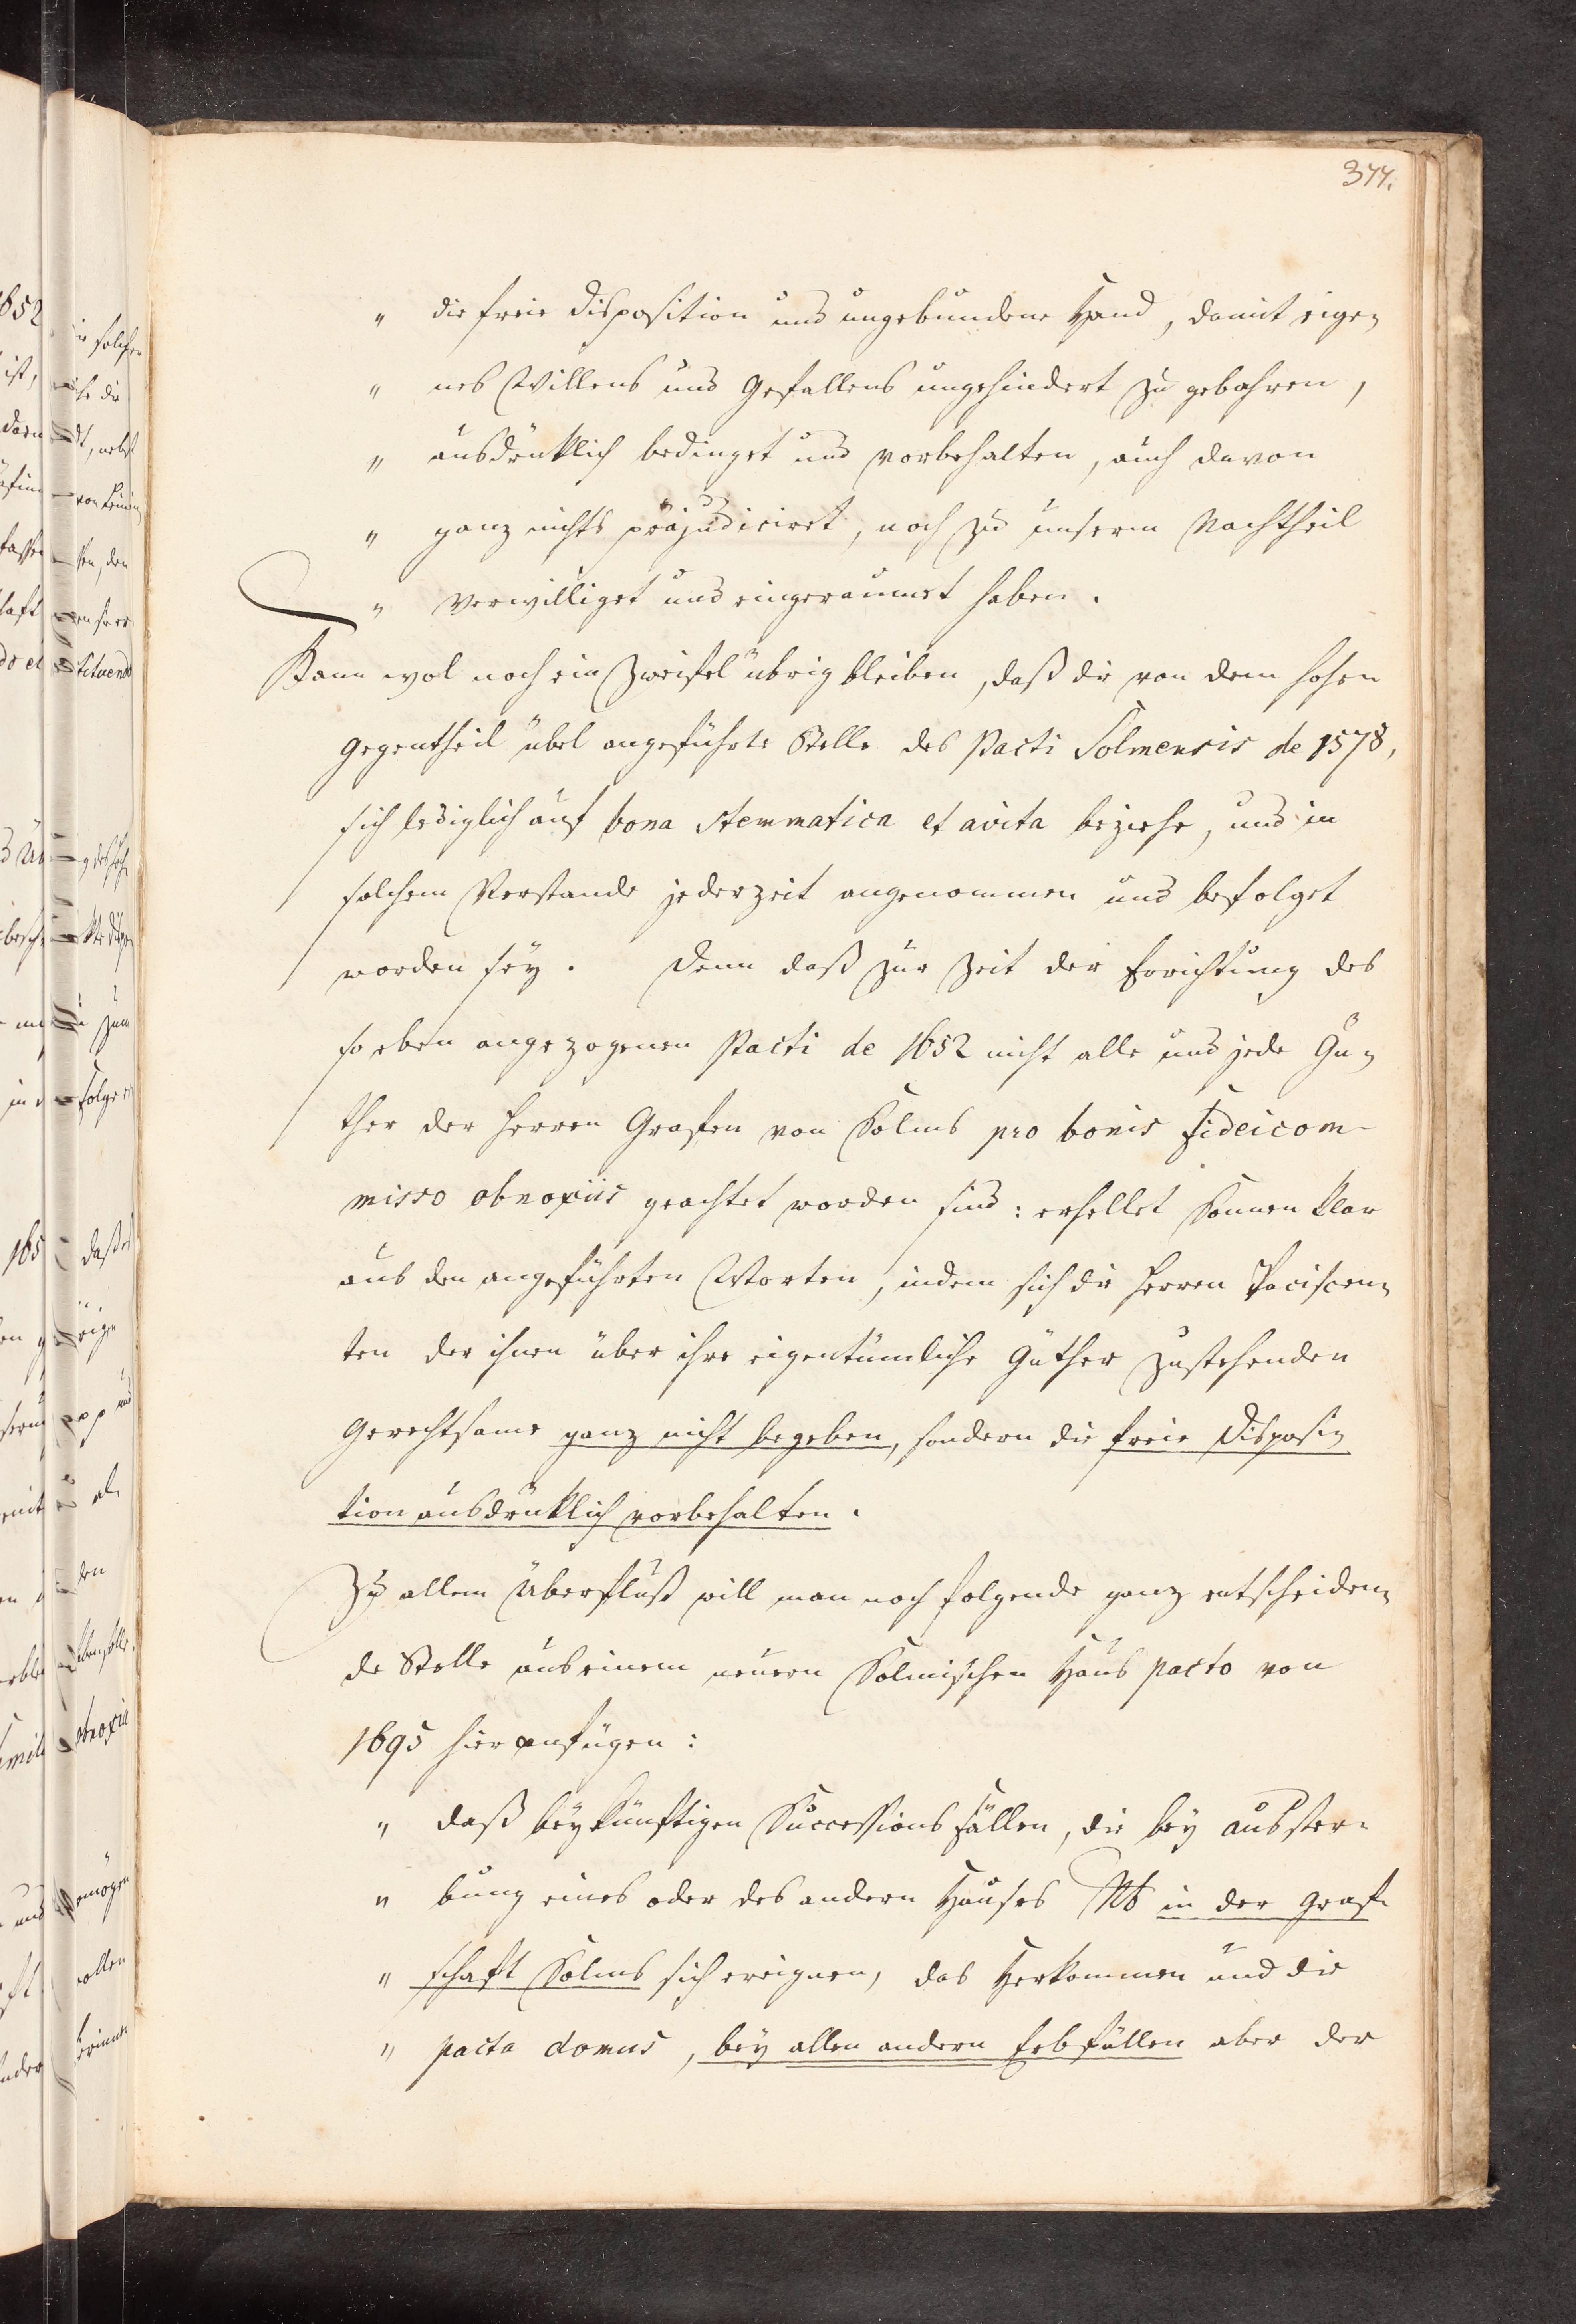 377.
" die freie Disposition und ungebundene Hand, damit eige-
" nes Willens und Gefallens ungehindert zu gebahren,
" ausdrüklich bedinget und vorbehalten, auch davon
" ganz nichts präjudiciret, noch zu unserm Nachtheil
" verwilliget und eingeraumet haben.
Kann wol noch ein Zweifel übrig bleiben, daß die von dem hohen
Gegentheil übel angeführte Stelle des Pacti Solmensis de 1578,
sich lediglich auf bona stemmatica et avita beziehe, und in
solchem Verstande jederzeit angenommen und befolget
worden sey. Denn daß zur Zeit der Errichtung des
so eben angezogenen Pacti de 1652 nicht alle und jede Gü-
ther der Herren Grafen von Solms pro bonis fideicom-
misso obnoxiis geachtet worden sind: erhellet Sonnen klar
aus den angeführten Worten, indem sich die Herren Paciscen-
ten der ihnen über ihre eigentümliche Güther zustehenden
Gerechtsame ganz nicht begeben, sondern die freie Disposi-
tion ausdrüklich vorbehalten.
Zu allem Überfluß will man noch folgende ganz entscheiden-
de Stelle aus einem neuern Solmischen Haus pacto von
1695 hier anfügen:
" daß bey künftigen Successions fällen, die bey Ausster-
" bung eines oder des andern Hauses NB in der Graf-
" schaft Solms sich ereignen, das Herkommen und die
" pacta domus, bey allen andern Erbfällen aber der